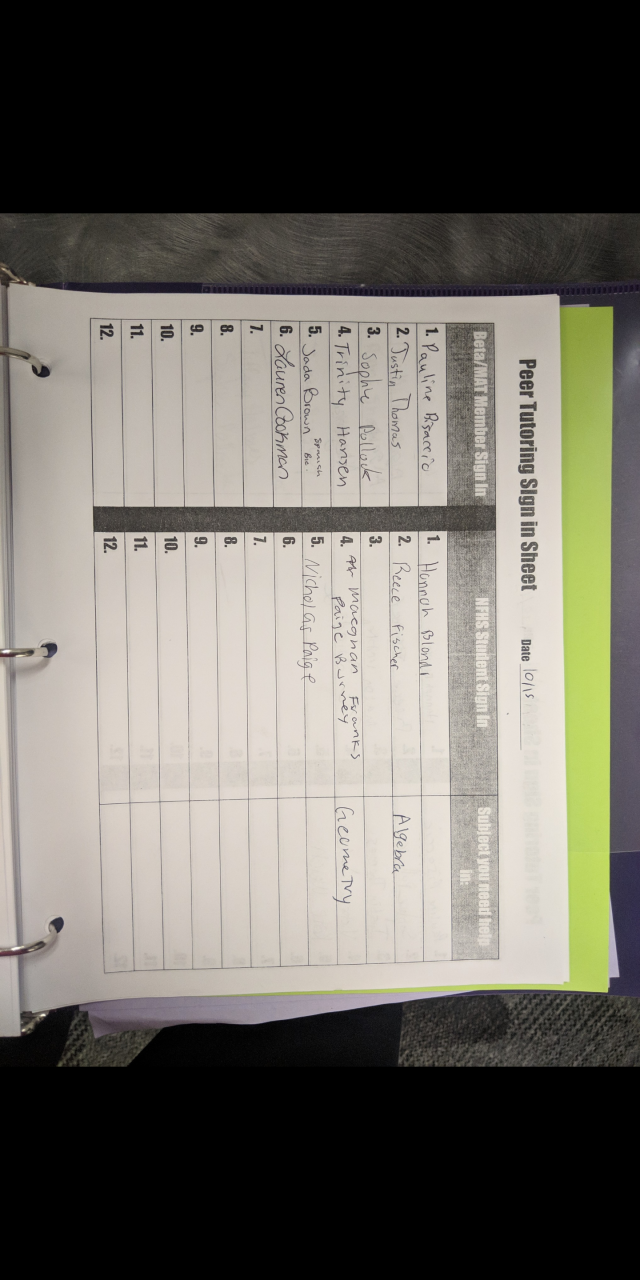 Peer Tutoring Sign in Sheet Date 10/15
Beta/MAT Member Sign In NFHS Student Sign In Subject you need help in:
1. Pauline 1. Hannah Blondi
2. Justin Thomas 2. Reece Fischer Algebra
3. Sophie Pollock 3.
4. Trinity Hansen 4. Maeghan Franks Geometry
Paige Burney
5. Jada Brown Spanish 5. Nicholas Paige
Bio.
6. Lauren Cookman 6.
7. 7.
8. 8.
9. 9.
10. 10.
11. 11.
12. 12.